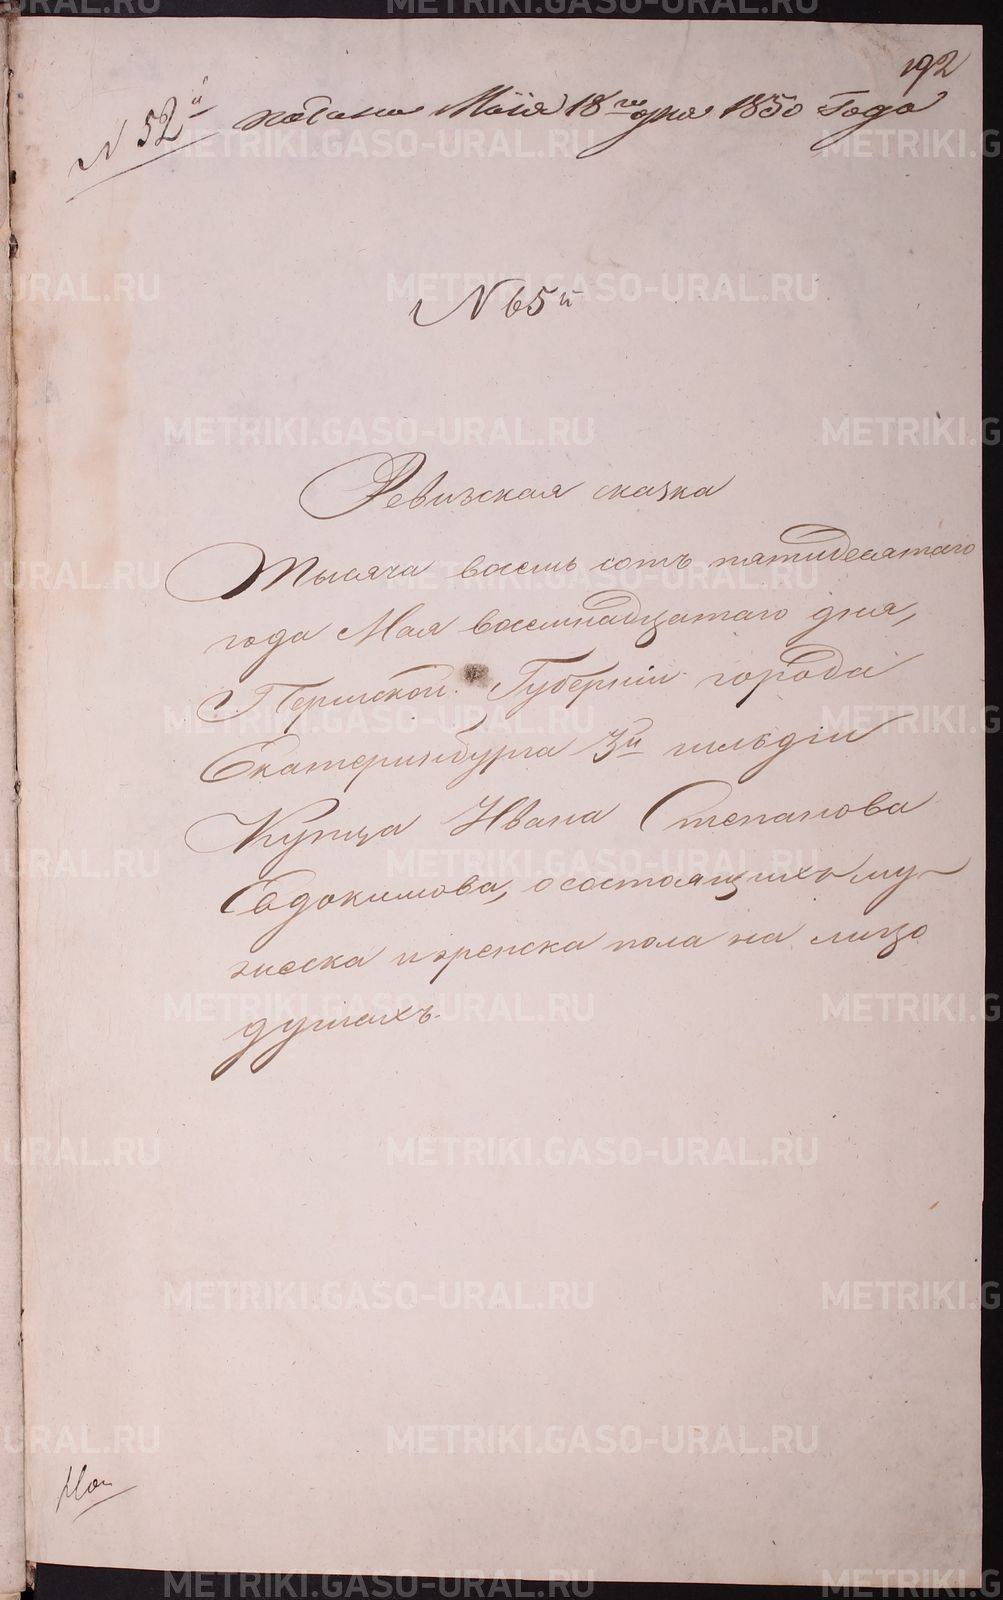 192
N 52й подана Маія 18го дня 1850 Года
N 65й
Ревизская сказка
Тысяча восемь сотъ пятидесятаго
года Мая восемнадцатаго дня,
Пермской Губерніи города
Екатеринбурга 3й гильдіи
Купца Ивана Степанова
Евдокимова, о состоящихъ му-
жеска и женска пола на лицо
душахъ.
METRIKI.GASO-URAL.RU